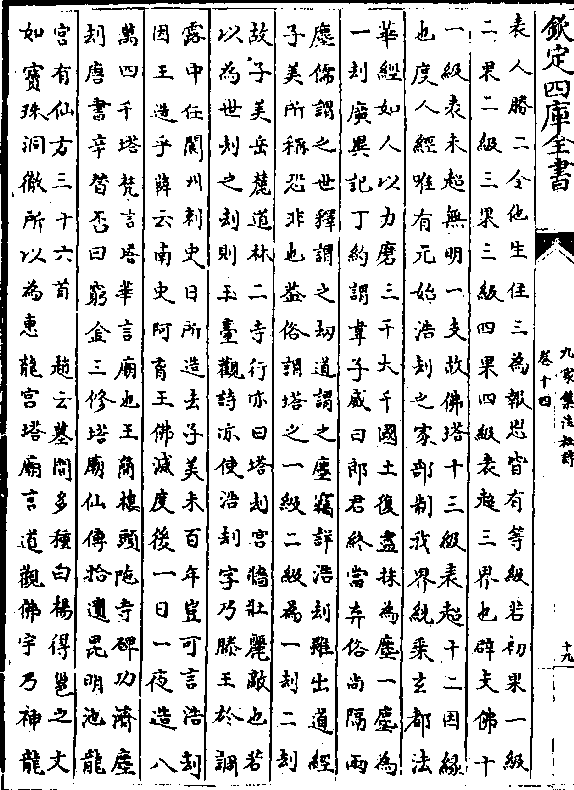 欽定四庫全書
九家集注杜詩
卷十四
十九
表人勝二令他生住三為報恩皆有等級若初果一級
二果二級三果三級四果四級表超三界也辟支佛十
一級表未超無明一支故佛塔十三級表超十二因緣
也度人經唯有元始浩刦之家部制我界統乗玄都法
華經如人以力磨三千大千國土復盡抹為塵一塵為
一刦廣異記丁約謂韋子威曰郎君終當弃俗尚隔兩
塵儒謂之世釋謂之刼道謂之塵竊詳浩刦雖出道經
子美所稱恐非也葢俗謂塔之一級二級為一刦二刦
故子美岳麓道林二寺行亦曰塔刦宫牆壯麗敵也若
以為世刦之刦則玉臺觀詩亦使浩刦字乃滕王於調
露中任閬州刺史日所造去子美未百年豈可言浩刦
因王造乎薛云南史阿育王佛滅度後一日一夜造八
萬四千塔梵言塔華言廟也王簡棲頭陁寺碑功濟塵
刦唐書辛替否曰窮金三修塔廟仙傳拾遺昆明池龍
宫有仙方三十六首 趙云墓間多種白楊得邕之文
如寶珠洞徹所以為惠 龍宫塔廟言道觀佛宇乃神龍